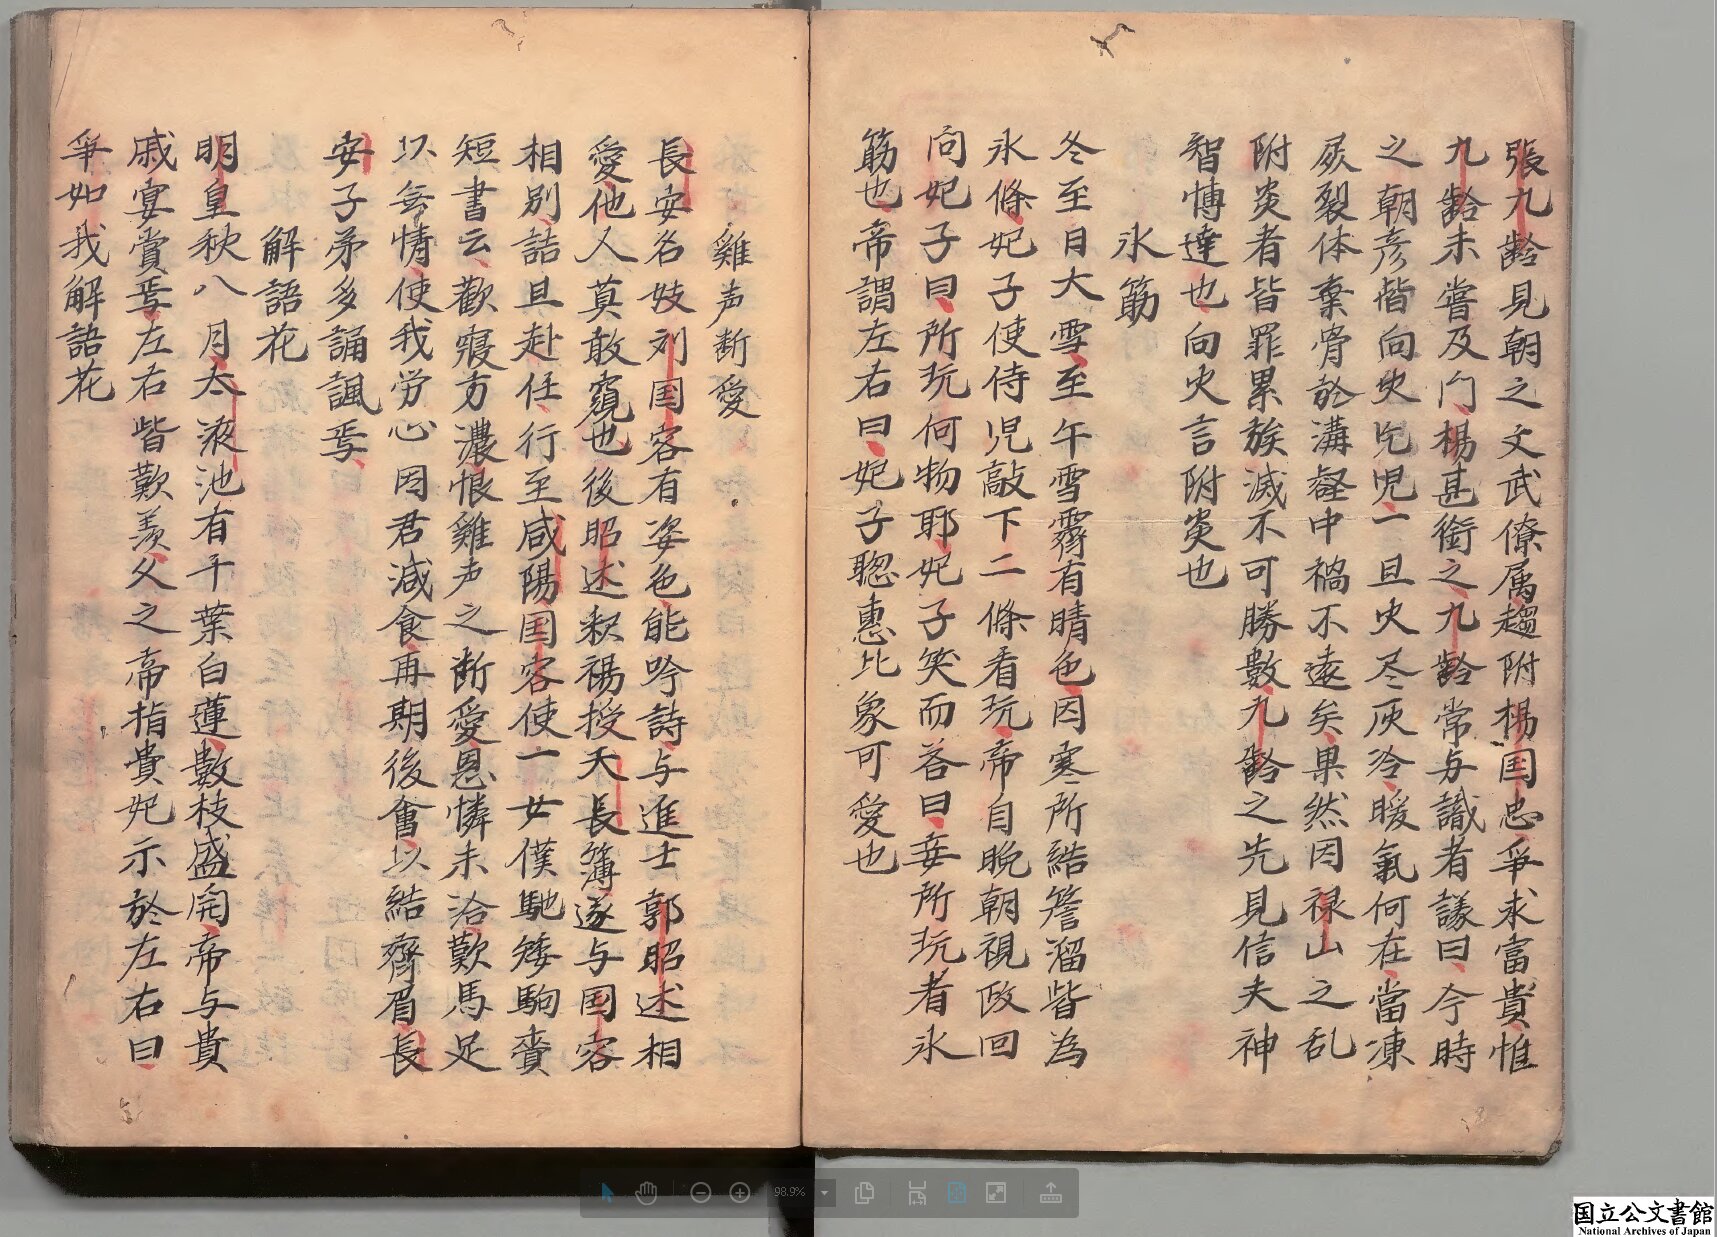 張九齡見朝之文武僚属趨附楊国忠爭求富貴惟
九齡未嘗及門楊甚銜之九齡常与識者議曰今時
之朝彦皆向火乞児一旦火尽灰冷暖氣何在當凍
屍裂体棄骨於溝壑中禍不遠矣果然因禄山之乱
附炎者皆罪累族滅不可勝數九齡之先見信夫神
智博達也向火言附炎也
氷筯
冬至日大雪至午雪霽有晴色因寒所結簷溜皆為
氷條妃子使侍児敲下二條看玩帝自晩朝視政回
问妃子曰所玩何物耶妃子笑而荅曰妾所玩者氷
筯也帝謂左右曰妃子聡惠比象可愛也
雞声断愛
長安名妓刘国容有姿色能吟詩与進士郭昭述相
愛他人莫敢窺也後昭述釈褐授天長簿遂与国容
相別詰旦赴任行至咸陽国容使一女僕馳矮駒賫
短書云歡寝方濃恨雞声之断愛恩憐未洽歎馬足
以無情使我労心因君減食再期後會以結齊眉長
安子弟多誦諷焉
解語花
明皇秋八月太液池有千葉白蓮數枝盛開帝与貴
戚宴賞焉左右皆歎羨父之帝指貴妃示於左右曰
爭如我解語花
98.9%
国立公文書館
National Archives of Japan